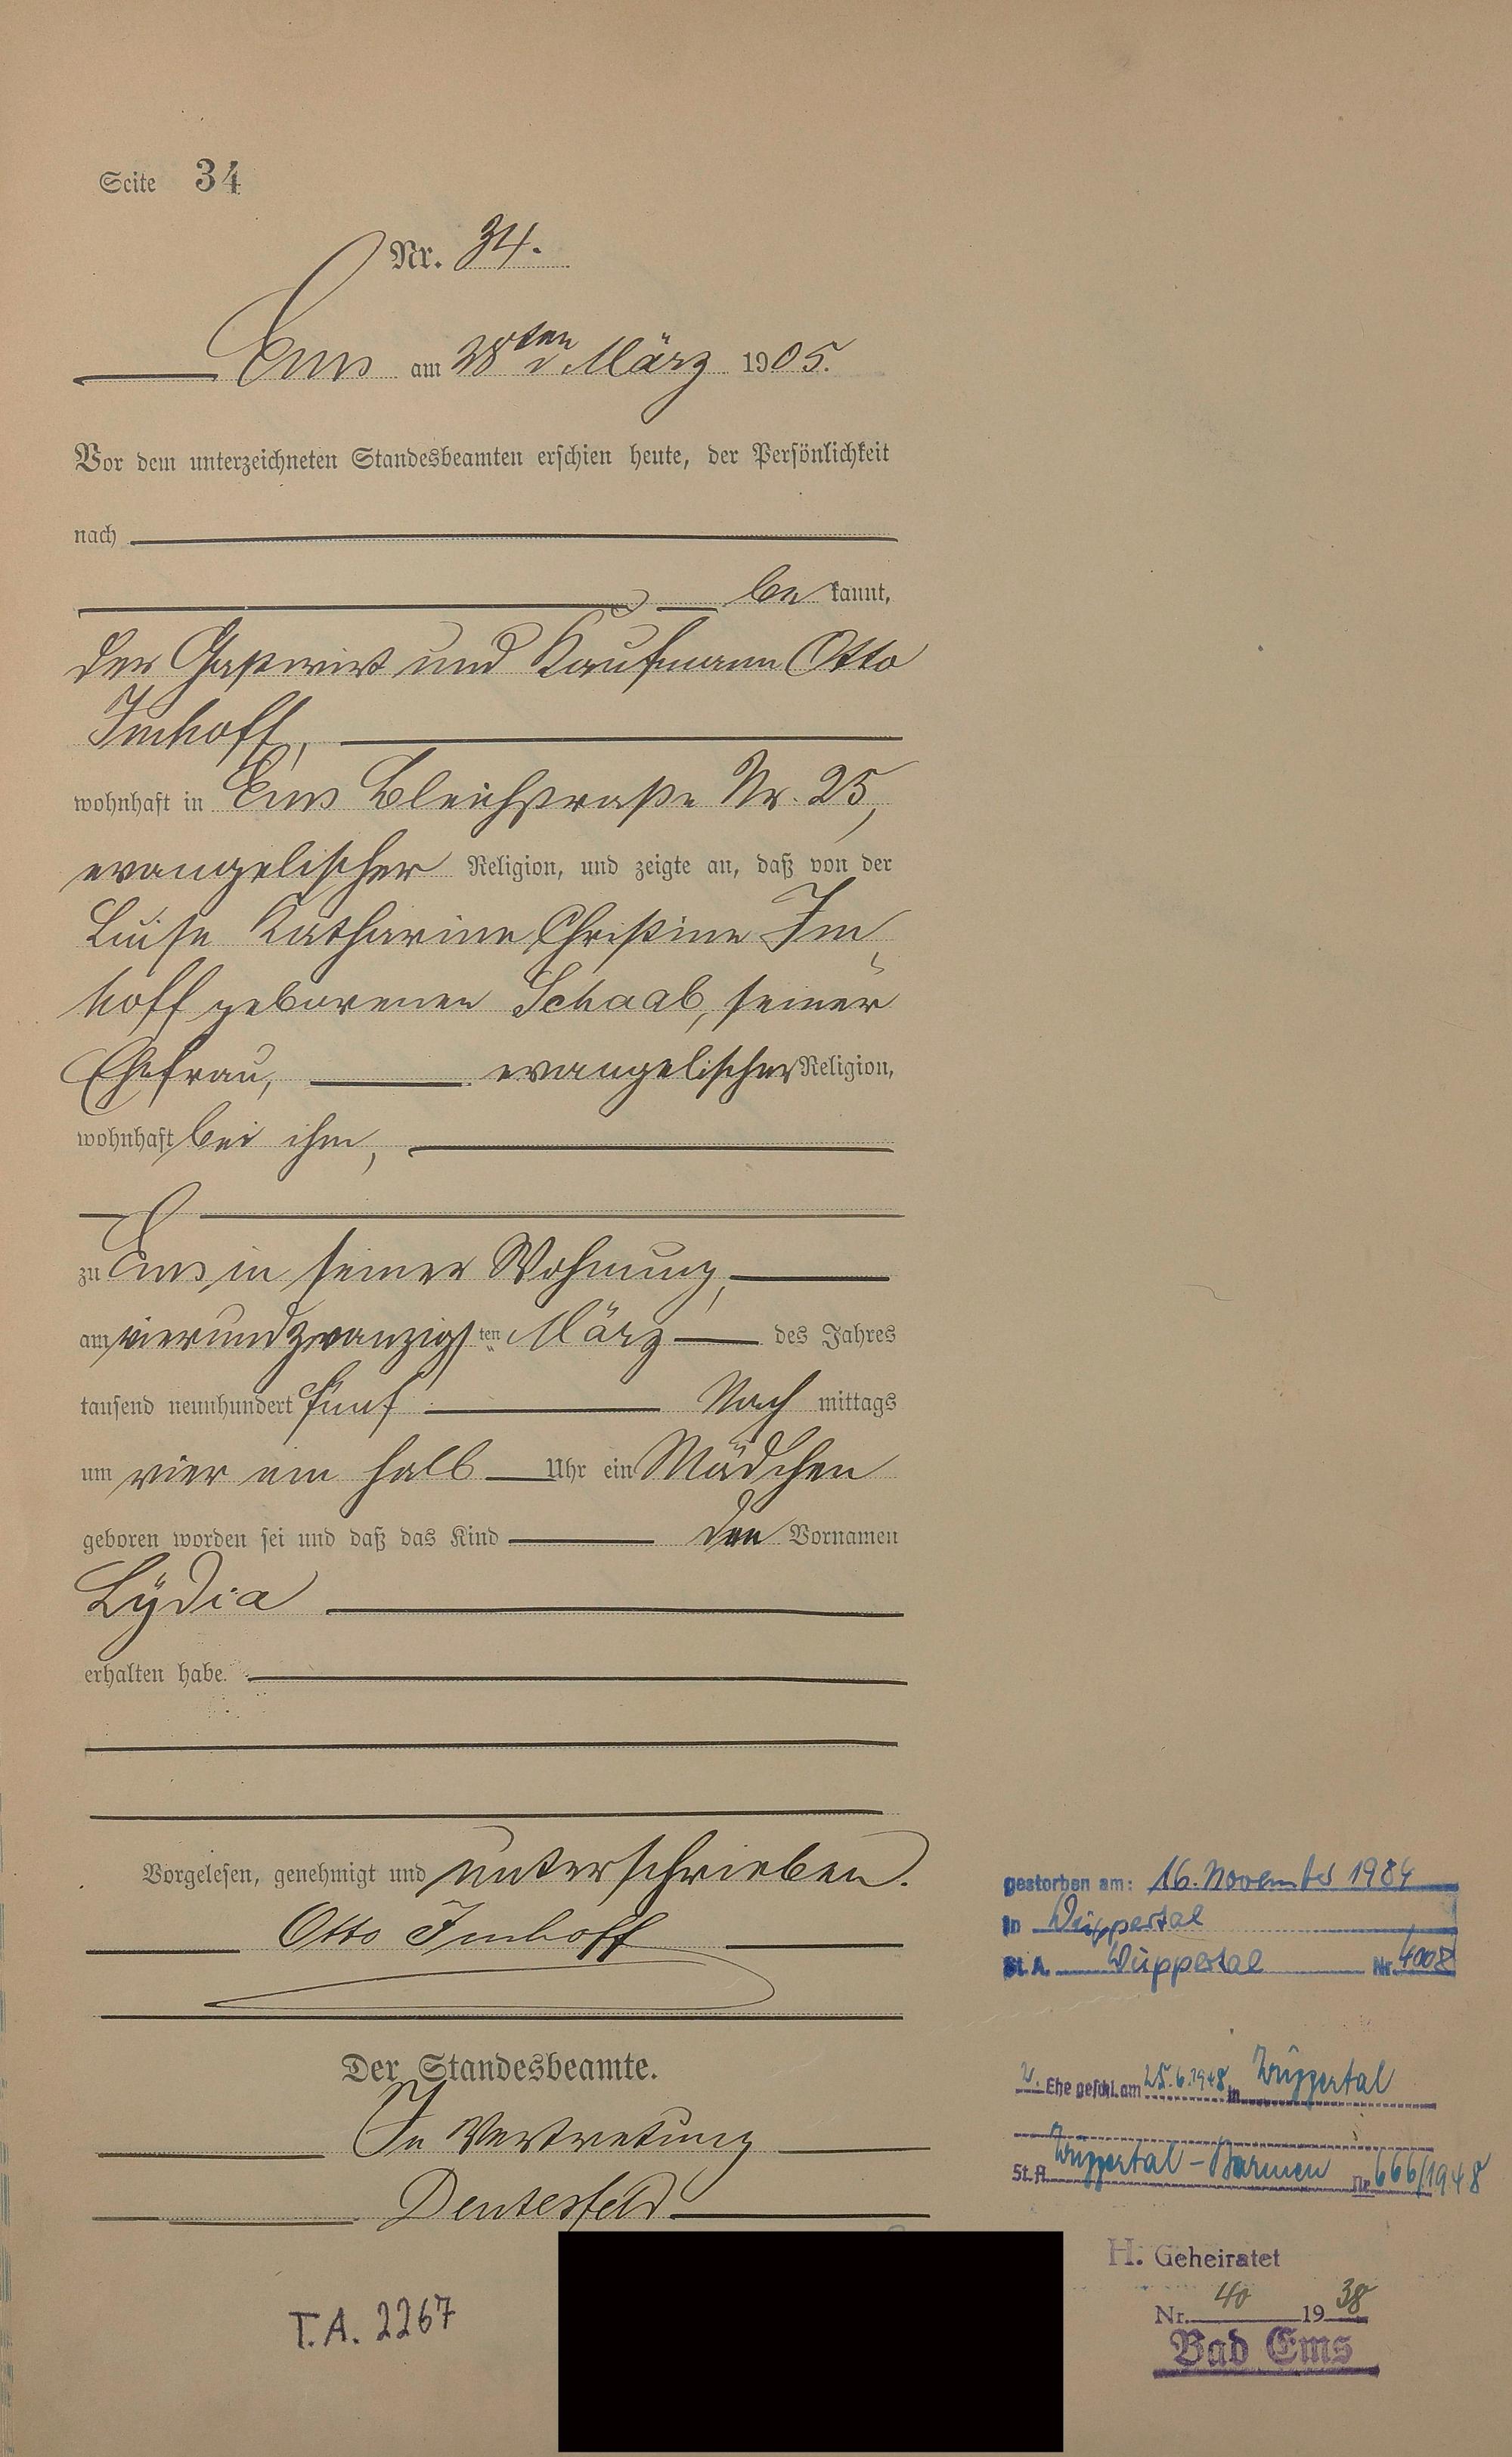 Seite 34
Nr. 34.
Ems am 28ten März 1905.
Vor dem unterzeichneten Standesbeamten erschien heute, der Persönlichkeit
nach
be kannt,
der Gastwirt und Kaufmann Otto
Imhoff,
wohnhaft in Ems Bleichstraße Nr. 25,
evangelischer Religion, und zeigte an, daß von der
Luise Katharine Christine Im-
hoff geborenen Schaab, seiner
Ehefrau, evangelischer Religion,
wohnhaft bei ihm,
zu Ems in seiner Wohnung,
am vierundzwanzigsten März des Jahres
tausend neunhundert fünf Nach mittags
um vier ein halb Uhr ein Mädchen
geboren worden sei und daß das Kind den Vornamen
Lydia
erhalten habe.
Vorgelesen, genehmigt und unterschrieben.
Otto Imhoff
Der Standesbeamte.
In Vertretung
Deutesfeld
T.A. 2267
gestorben am: 16. November 1984
in Wuppertal
St. A. Wuppertal Nr. 4008
2. Ehe geschl. am 25.6.1948 in Wuppertal
St. A. Wuppertal-Barmen Nr. 666/1948
H. Geheiratet
Nr. 40 1938
Bad Ems